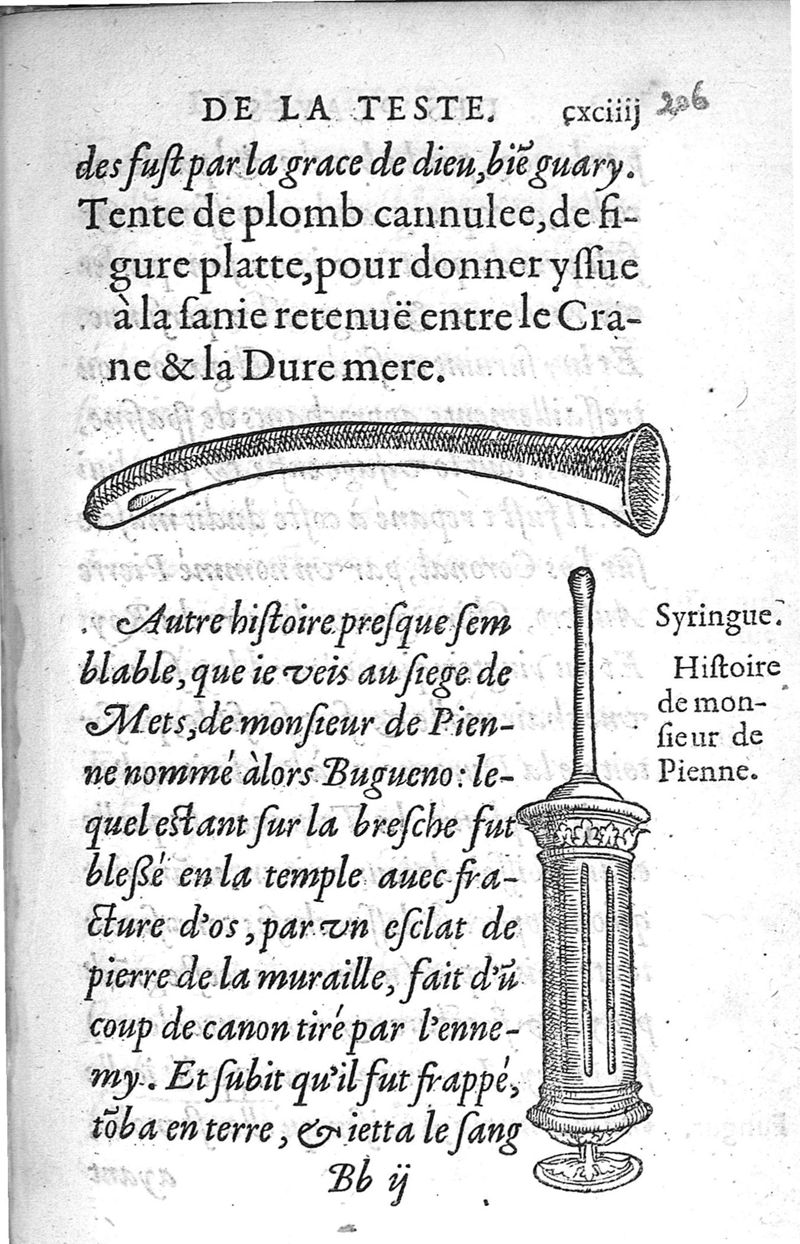 DE LA TESTE. cxciiij 206
des fust par la grace de dieu, biē guary.
Tente de plomb cannulee, de fi-
gure platte, pour donner yssue
à la sanie retenuë entre le Cra-
ne & la Dure mere.
Autre histoire presque sem
blable, que ie veis au siege de
Mets, de monsieur de Pien-
ne nommé àlors Bugueno: le-
quel estant sur la bresche fut
blessé en la temple auec fra-
cture d'os, par vn esclat de
pierre de la muraille, fait d'ū
coup de canon tiré par l'enne-
my. Et subit qu'il fut frappé,
tōba en terre, & ietta le sang
Bb ij
Syringue.
Histoire
de mon-
sieur de
Pienne.